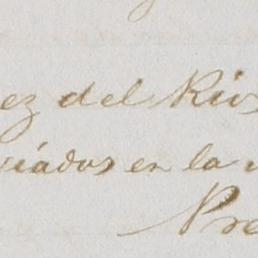 ez del Rio
viados en la
Pre